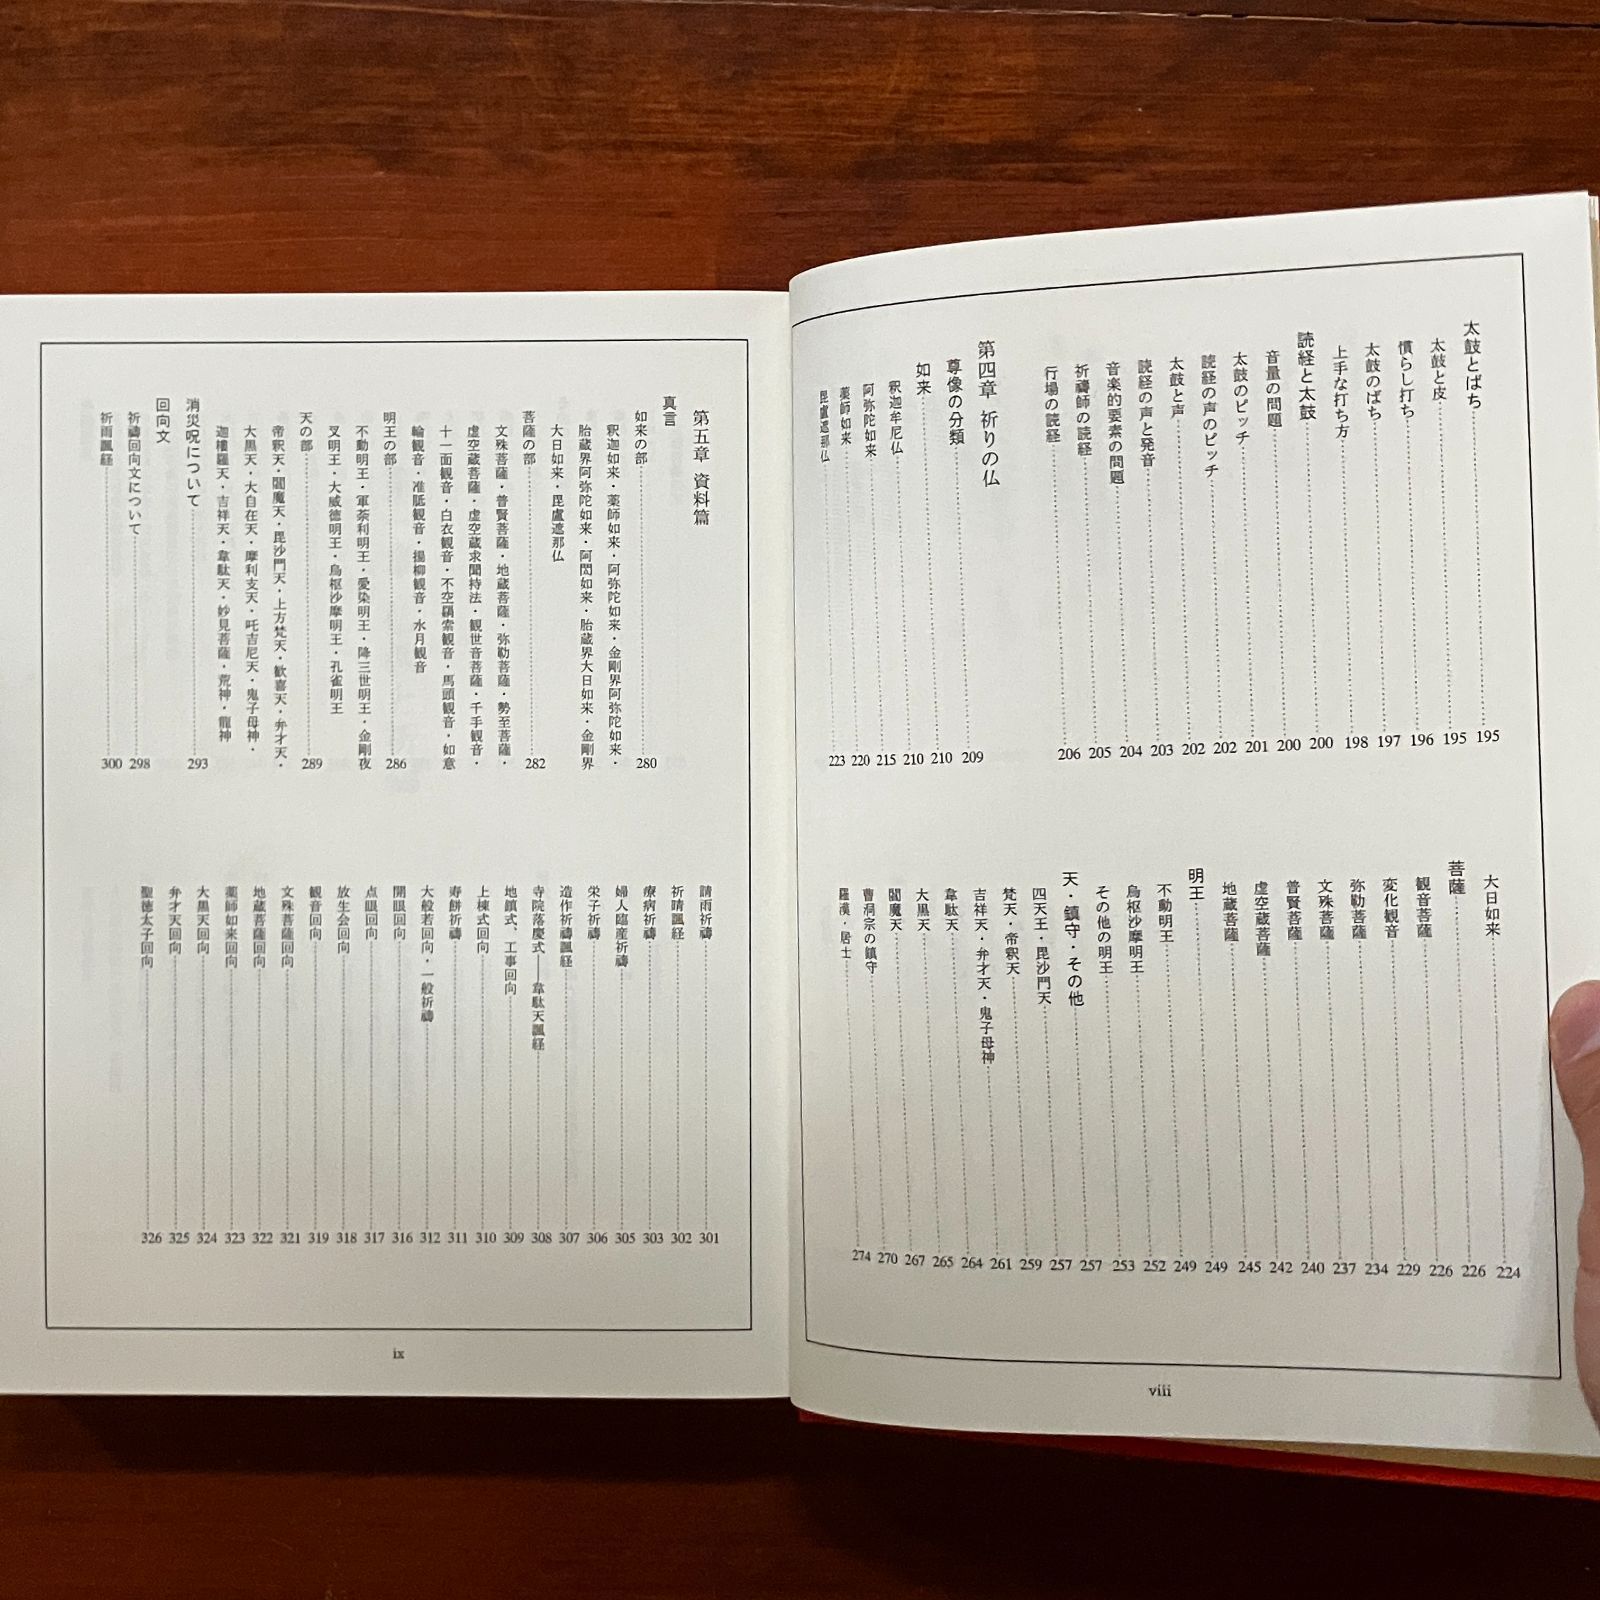 太鼓とばち……195
太鼓と皮……195
慣らし打ち……196
太鼓のばち……197
上手な打ち方……198
読経と太鼓……200
音量の問題……200
太鼓のピッチ……201
読経の声のピッチ……202
太鼓と声……202
読経の声と発音……203
音楽的要素の問題……204
祈禱師の読経……205
行場の読経……206
第四章 祈りの仏
尊像の分類……209
如来……210
釈迦牟尼仏……210
阿弥陀如来……215
薬師如来……220
毘盧遮那仏……223
大日如来……224
菩薩……226
観音菩薩……226
変化観音……229
弥勒菩薩……234
文殊菩薩……237
普賢菩薩……240
虚空蔵菩薩……242
地蔵菩薩……245
明王……249
不動明王……249
烏枢沙摩明王……252
その他の明王……253
天・鎮守・その他……257
四天王・毘沙門天……257
梵天・帝釈天……259
吉祥天・弁才天・鬼子母神……261
韋駄天……264
大黒天……265
閻魔天……267
曹洞宗の鎮守……270
羅漢・居士……274
viii
第五章 資料篇
真言
如来の部……280
釈迦如来・薬師如来・阿弥陀如来・金剛界阿弥陀如来・
胎蔵界阿弥陀如来・阿閦如来・胎蔵界大日如来・金剛界
大日如来・毘盧遮那仏
菩薩の部……282
文殊菩薩・普賢菩薩・地蔵菩薩・弥勒菩薩・勢至菩薩・
虚空蔵菩薩・虚空蔵求聞持法・観世音菩薩・千手観音・
十一面観音・白衣観音・不空羂索観音・馬頭観音・如意
輪観音・准胝観音・揚柳観音・水月観音
明王の部……286
不動明王・軍荼利明王・愛染明王・降三世明王・金剛夜
叉明王・大威徳明王・烏枢沙摩明王・孔雀明王
天の部……289
帝釈天・閻魔天・毘沙門天・上方梵天・歓喜天・弁才天・
大黒天・大自在天・摩利支天・吒吉尼天・鬼子母神・
迦樓羅天・吉祥天・韋駄天・妙見菩薩・荒神・龍神
消災呪について……293
回向文
祈禱回向文について……298
祈雨諷経……300
請雨祈禱……301
祈晴諷経……302
療病祈禱……303
婦人臨産祈禱……305
栄子祈禱……306
造作祈禱諷経……307
寺院落慶式——韋駄天諷経……308
地鎮式、工事回向……309
上棟式回向……310
寿餅祈禱……311
大般若回向・一般祈禱……312
開眼回向……316
点眼回向……317
放生会回向……318
観音回向……319
文殊菩薩回向……321
地蔵菩薩回向……322
薬師如来回向……323
大黒天回向……324
弁才天回向……325
聖徳太子回向……326
ix